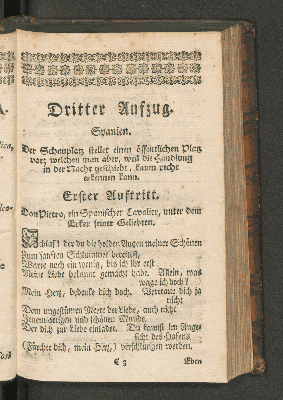 Dritter Aufzug.
Spanien.
Der Schauplatz stellet einen öffentlichen Platz
vor; welchen man aber, weil die Handlung
in der Nacht geschieht, kaum recht
erkennen kann.
Erster Auftritt.
Don Pietro, ein Spanischer Cavalier, unter dem
Erker seiner Geliebten.
Schlaf! der du die holden Augen meiner Schönen
Zum sanften Schlummer bereitest,
Warte noch ein wenig, bis ich ihr erst
Meine Liebe bekannt gemacht habe. Allein, was
wage ich doch?
Mein Herz, bedenke dich doch. Vertraue dich ja
nicht
Dem ungestümen Meere der Liebe, auch nicht
Jenem artigen und schönen Munde,
Der dich zur Liebe einladet. Du kannst im Ange-
sicht des Hafens
(Fürchte dich, mein Herz,) verschlungen werden.
C 3 Eben